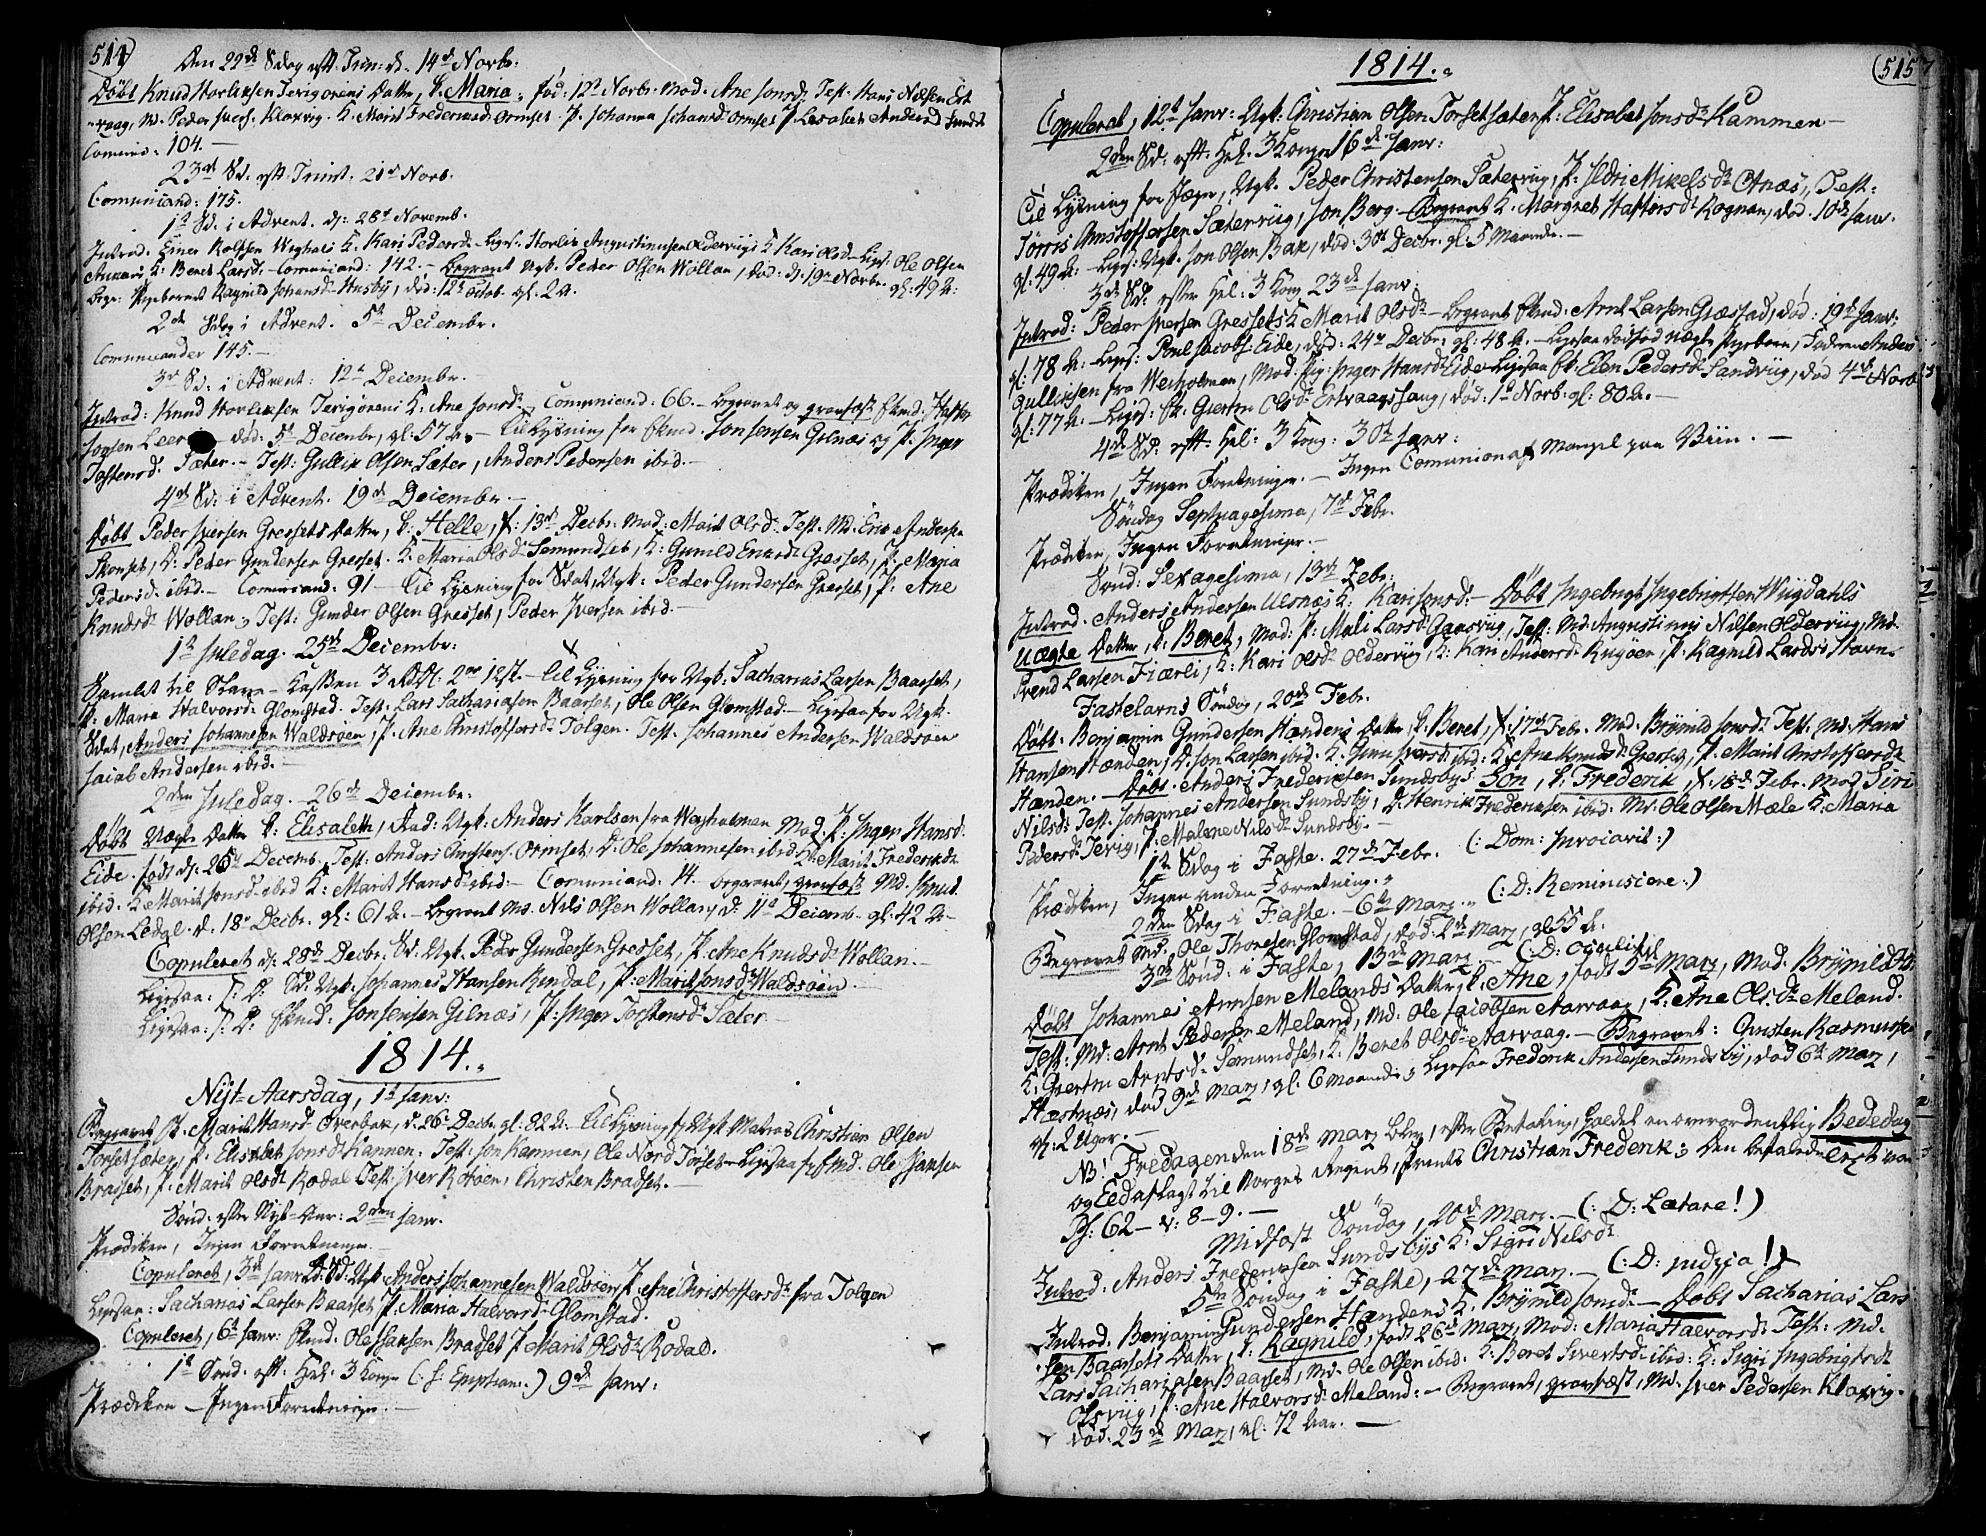 514)
Den 22de Sdag eft. Trin: d. 14de Norbr.
Døbt Knud Torlefsen Terigorens Datter, k. Maria, fød: 12t Norbr. Mod. Ane Jonsd. Test. Hans Nilsen Ert
vaag, M. Peder Klaxvig. K. Marit Fredericsd. Ormset. P. Johanna Johansd. Ormset P. Anderød
Comuni: 104.
23de Sd. eft Trinit. 21de Norb.
Comuniand: 175.
1te Sd. i Advent. d: 28de Novemb.
Introd. Einer Rolfsen K. Kari Pedersd. Ligs. Torlev Augustinusen K. Kari Olsd. Ligs. Ole Olsen
K: Beret Larsd. Comuniand: 142. Begravet Ugk. Peder Olsen Wollan, død: d: 19de Norbr. gl: 49 A.
Begr: Pigebarnet Ragnild Johansd. Husby, død: 12te Octob. gl. 2 A.
2de Sdag i Advent. 5te Decembr.
Communicander 145.
3de Sd. i Advent: 12te Decembr.
Introd: Knud Torlefsen Terigorens K. Ane Jonsd. Comuniand: 66. Begravet og gravfæst Ekmd:
Leer død: 5te Decembr, gl: 57 A. Til Lysning for Ekmd. Jon Jensen Gilnæs og P. Inger
Tostensd. Sæter. Test: Gullik Olsen Sæter, Anders Pedersen ibid.
4de Sd. i Advent. 19de Decembr.
Døbt Peder Iversen Gressets Datter, k: Helle, f: 13de Decbr. Mod: Marit Olsd. Test. Md. Eric Andersen
Skonset, D. Peder Gundersen Gresset. K. Maria Olsd. Semundset, K: Gunild Gresset, P: Maria
Pedersd. ibid. Comuniand: 91 Til Lysning for Sdat, Ugk: Peder Gundersen Gresset, P. Ane
Knudsd. Wollan; Test: Gunder Olsen Gresset, Peder Iversen ibid.
1te Juledag. 25de Decembr:
Samlet til Skare-Kassen 3 Rdl: 2 12 s. Til Lysning for Ugk: Sacharias Larsen Baarset,
P: Maria Halvorsd. Glomstad. Test. Lars Sachariasen Baarset, Ole Olsen Glomstad. Ligesaa for Ugk.
Sdat, Anders Johannesen Waldsøen, P. Ane Christoffersd. Tolgen. Test. Johannes Andersen Waldsøen
Jacob Andersen ibid.
2den Juledag. 26de Decembr.
Døbt Uægte Datter k: Elisabeth, Fad: Ugk: Anders Karlsen fra Mod: P: Inger Hansd.
Eide. født d: 26de Decemb. Test: Anders Christens. Ormset, D: Ole Johannesen ibid. K: Marit Fredericsd.
ibid. K: Marit Jonsd. ibid K: Marit Hansd. ibid. Comuniand. 14. Begravet, gravfæst Md. Knud
Olsen Ledal. d. 18de Decbr. gl: 61 A. Begravet Md. Nils Olsen Wollan, d: 11te Decemb. gl: 42 A.
Copuleret d: 28de Decbr. Sd. Ugk. Peder Gundersen Gresset, P. Ane Knudsd. Wollan.
Ligesaa: s: D: Sd. Ugk. Johannes Hansen Rendal, P: Marit Jonsd. Waldsøen.
Ligesaa: s: D: Ekmd. Jon Jensen Gilnæs, P: Inger Tostensd. Sæter
1814.
Nyt-Aarsdag, 1te Janr:
Begravet P. Marit Hansd. Overbak, d. 26de Decbr. gl: 82 A. Til Lysning f. Ugk. Matros Christian Olsen
Torsetsæter, P. Elisabet Jonsd. Kammen. Test: Jon Kammen, Ole Nord Torset. Ligesaa f. Ekmd. Ole Hansen
Bradset, P. Marit Olsd. Rodal Test: Iver Rotøen, Christen Bradset.
Sønd. efter Nyt-Aar: 2den Janr.
Prædiken, Ingen Forretninger.
Copuleret, 3de Janr. Sd: Ugk. Anders Johannesen Waldsøen, P. Ane Christoffersd. fra Tolgen
Ligesaa: Sacharias Larsen Baarset, P. Maria Halvorsd. Glomstad.
Copuleret, 6te Janr: Ekmd. Ole Hansen Bradset P. Marit Olsd. Rodal.
1te Sønd. eft. Hel. 3 Konge (: s: Epiphan:) 9de Janr:
Prædiken - Ingen Forretninger.
1814.
(515
Copulerat, 12te Janr: Ugk. Christian Olsen Torsetsæter, P. Elisabet Jonsd. Kammen
2den Sd. eft. Hel. 3 Konge 16de Janr:
Til Lysning for Jæger, Ugk. Peder Christensen Sætervig, P. Sidri Mikelsd. Otnæs, Test:
Tørris Christoffersen Sætervig, Jon Berg. Begravet K. Margret Rognan, død. 10de Janr.
gl. 49 A: Ligs: Ugk. Jon Olsen Bak, død: 30te Decbr. gl: 5 Maaneder.
3de Sd. efter Hel: 3 Kong 23de Janr:
Introd: Peder Iversen Gressets K. Marit Olsd. Begravet Ekmd. Arnt Larsen Græstad, død: 19de Janr:
gl. 78 A. Ligs: Poul Jacobs. Eide, død: 24de Decbr. gl: 48 A. Ligesaa dødfød uægte Pigebarn, Faderen Anders
Gulliksen fra Werholmen, Mod: Pig. Inger Hansd. Eide. Ligesaa Ek. Elen Pedersd. Sandvig, død 4de Norb
gl. 77 A. Ligs: Ek: Giertru Olsd. Ertvaagshaug, død: 1te Norb. gl: 80 A.
4de Sd. eft. Hel: 3 Kong: 30te Janr:
Prædiken, Ingen Forretninger. Ingen Comunion af Mangel paa Viin.
Søndag Septuagesima, 7de Febr.
Prædiken, Ingen Forretninger.
Sønd: Sexagesima, 13de Febr.
Introd. Anders Andersen Ulsnæs K: Kari Jonsd: Døbt Ingebrigt Ingebrigtsen Wiigdahls
Uægte Datter, k. Beret, Mod: P. Mali Larsd. Gaasvig, Test: Md. Augustinus Nilsen Oldervig, Md.
Svend Larsen Fiærli, K: Kari Olsd. Oldervig, K: Kari Andersd. Rugøen, P. Ragnild Larsd. Stavne.
Fastelavns Søndag, 20de Febr.
Døbt: Benjamin Gundersen Hændens Datter, k. Beret, f. 17de Febr. Mod: Brynild Jonsd. Test. Md. Hans
Hansen Hænden, D: Jon Larsen ibid: K: Iversd. ibid: K: Ane Knudsd. Gresset, P. Marit Christoffersd.
Hænden. Døbt. Anders Frederiksen Sundsbys Søn, k. Frederik, f. 18de Febr. Mod Siri
Nilsd. Test. Johannes Andersen Sundsby, D: Henrik Frederiksen ibid: Md. Ole Olsen Mæle K: Maria
Pedersd. Tevig, P. Malene Nilsd. Sundsby.
1te Sdag i Faste. 27de Febr. (: Dom: Invocavit:)
Prædiken, Ingen anden Forretning.
2den Sdag i Faste. 6te Marz. (: D: Reminiscere:)
Begravet Md. Ole Thoresen Glomstad, død. 2de Marz, gl: 55 A.
3de Sønd: i Faste, 13de Marz. (: D: Oculi:)
Døbt Johannes Arntsen Melands Datter, k. Ane, født 5te Marz, Mod. Brynild
Test: Md. Arnt Pedersen Meland, Md. Ole Jacobsen Aarvaag, K. Ane Olsd. Meland.
K. Giertru Arntsd. Semundset, K. Beret Olsd. Aarvaag. Begravet: Christen Rasmussen
Hestnæs, død 9de Marz, gl. 6 Maaneder; Ligesaa Frederik Andersen Sundsby, død 6te Marz,
gl. 2 Uger.
NB! Fredagen den 18de Marz blev, efter Befaling, holdet en overordentlig Bededag
og Eed aflagt til Norges Regent, Prints Christian Frederik; Den befalede Text var
Ps: 62 v: 8-9.
Midfast Søndag, 20de Marz. (: D: Lætare!)
Introd: Anders Frederiksen Sundsbys K. Sigri Nilsd.
5te Søndag i Faste, 27de Marz. (: D: Judica!)
Introd. Benjamin Gundersen Hændens K. Brynild Jonsd. Døbt Sacharias Lars
sen Baarsets Datter, k. Ragnild, født 26de Marz, Mod: Maria Halvorsd. Test: Md.
Lars Sachariasen Baarset, Md. Ole Olsen ibid. K: Beret Sivertsd. ibid: K: Sigri Ingebrigtsd.
P. Ane Halvorsd. Meland: Begravet, gravfæst, Md. Iver Pedersen Klaxvig.
død: 23de Marz, gl: 72 Aar.